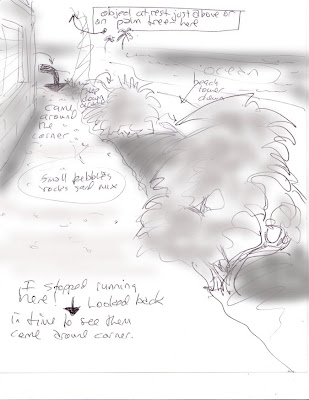 object at rest just above or
on palm trees here
ocean
beach
lower
down
came
around
the
corner
small pebbles
rocks sand mix
I stopped running
here Looked back
in time to see them
came around corner.